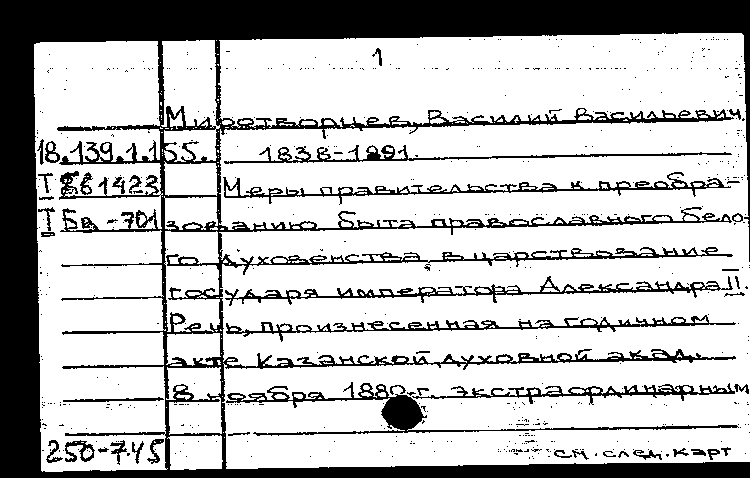 1
Миротворцев, Василий Васильевич
18.139.1.155. 1838-1891.
Т 1423 Меры правительства к преобра-
Т Бв-701 зованию быта православного бело-
го духовенства в царствование
государя императора Александра II.
Речь, произнесенная на годичном
акте Казанской духовной акад.
8 ноября 1880 г. экстраординарным
250-745 см. след. карт